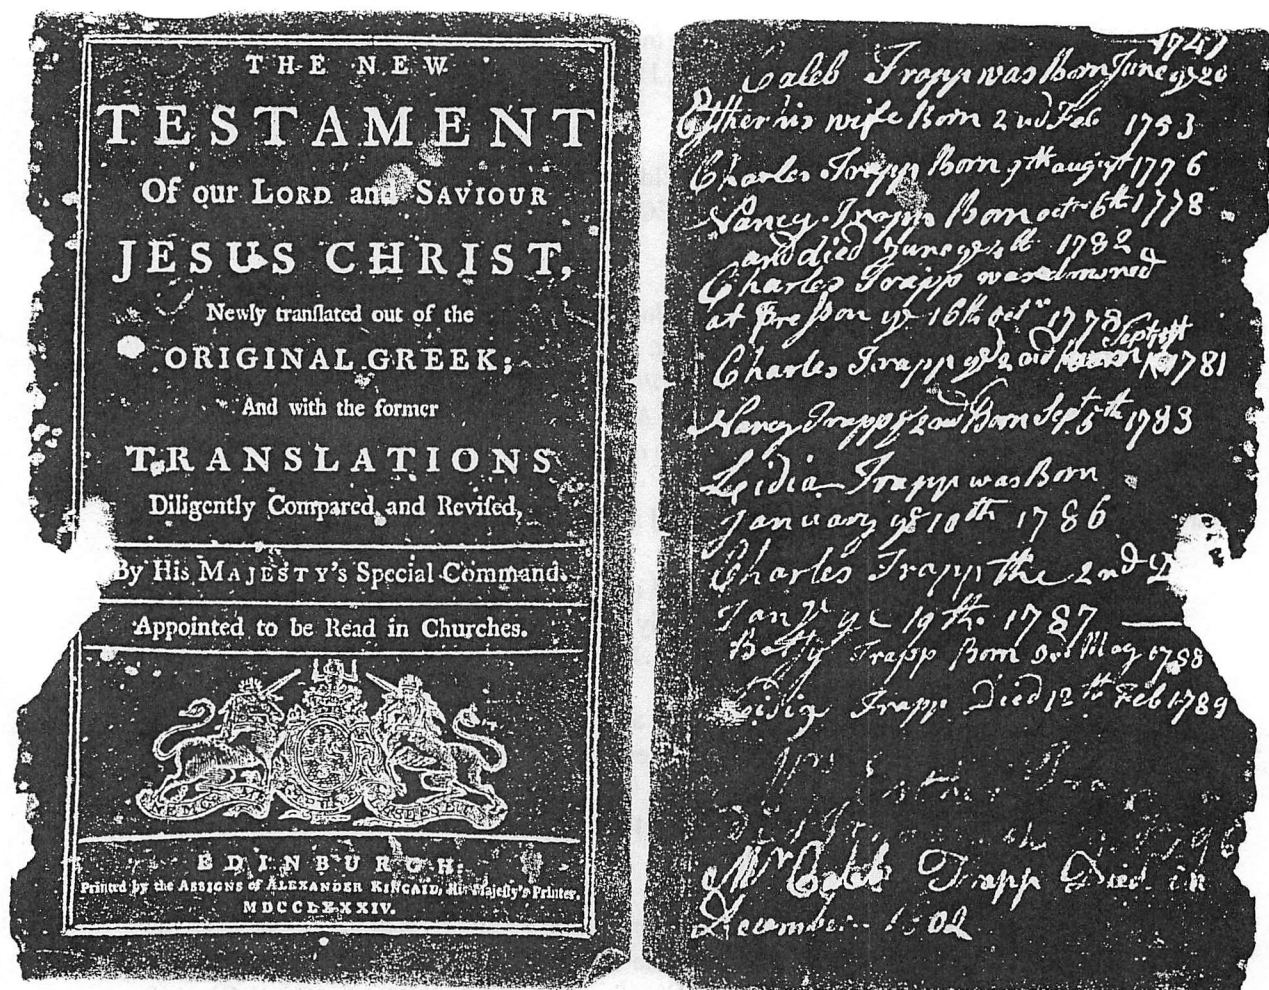 THE NEW
TESTAMENT
Of our LORD and SAVIOUR
JESUS CHRIST,
Newly tranſlated out of the
ORIGINAL GREEK;
And with the former
TRANSLATIONS
Diligently Compared and Reviſed,
By His MAJESTY's Special Command.
Appointed to be Read in Churches.
EDINBURGH:
Printed by the ASSIGNS of ALEXANDER KINCAID, His Majeſty's Printer.
MDCCLXXXIV.
1747
Caleb Trapp was Born June ye 20
Esther his wife Born 2nd Feb 1753
Charles Trapp Born 9th august 1776
Nancy Trapp Born octr 6th 1778
and died June ye 4th 1782
Charles Trapp was drowned
at Preston ye 16th octr 1778
Sept
Charles Trapp ye 2nd born 1781
Nancy Trapp ye 2nd Born Sept 5th 1783
Leidia Trapp was Born
January ye 10th 1786
Charles Trapp the 2nd D
Jany ye 19th 1787
Betty Trapp Born May 1788
Lidia Trapp Died 12th Feb 1789
Mr Caleb Trapp Died in
December 1802